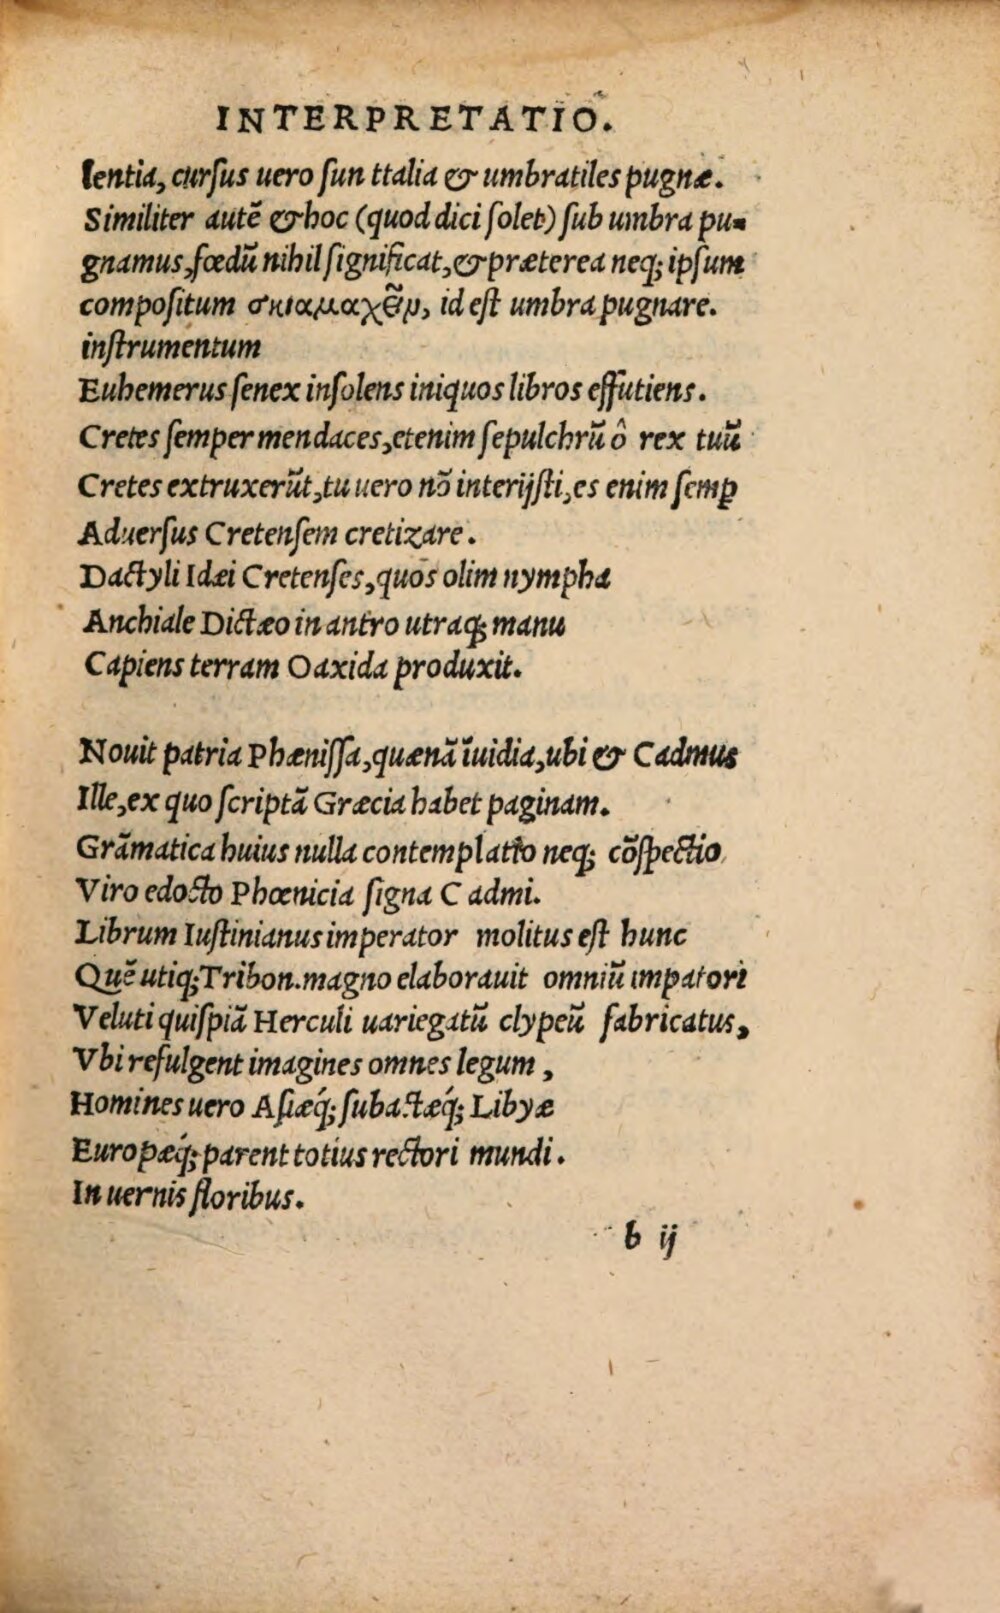 INTERPRETATIO.
lentia, cursus uero sun ttalia & umbratiles pugnæ.
Similiter autẽ & hoc (quod dici solet) sub umbra pu-
gnamus, fœdũ nihil significat, & præterea neq; ipsum
compositum σκιαμαχεῖν, id est umbra pugnare.
instrumentum
Euhemerus senex insolens iniquos libros effutiens.
Cretes semper mendaces, etenim sepulchrũ ô rex tuũ
Cretes extruxerũt, tu uero nõ interijsti, es enim semꝑ
Aduersus Cretensem cretizare.
Dactyli Idæi Cretenses, quos olim nympha
Anchiale Dictæo in antro utraq; manu
Capiens terram Oaxida produxit.
Nouit patria Phænissa, quænã ĩuidia, ubi & Cadmus
Ille, ex quo scriptã Græcia habet paginam.
Grãmatica huius nulla contemplatio neq; cõspectio
Viro edocto Phœnicia signa C admi.
Librum Iustinianus imperator molitus est hunc
Quẽ utiq; Tribon. magno elaborauit omniũ impatori
Veluti quispiã Herculi uariegatũ clypeũ fabricatus,
Vbi refulgent imagines omnes legum,
Homines uero Asiæq́; subactæq́; Libyæ
Europæq́; parent totius rectori mundi.
In uernis floribus.
b ij